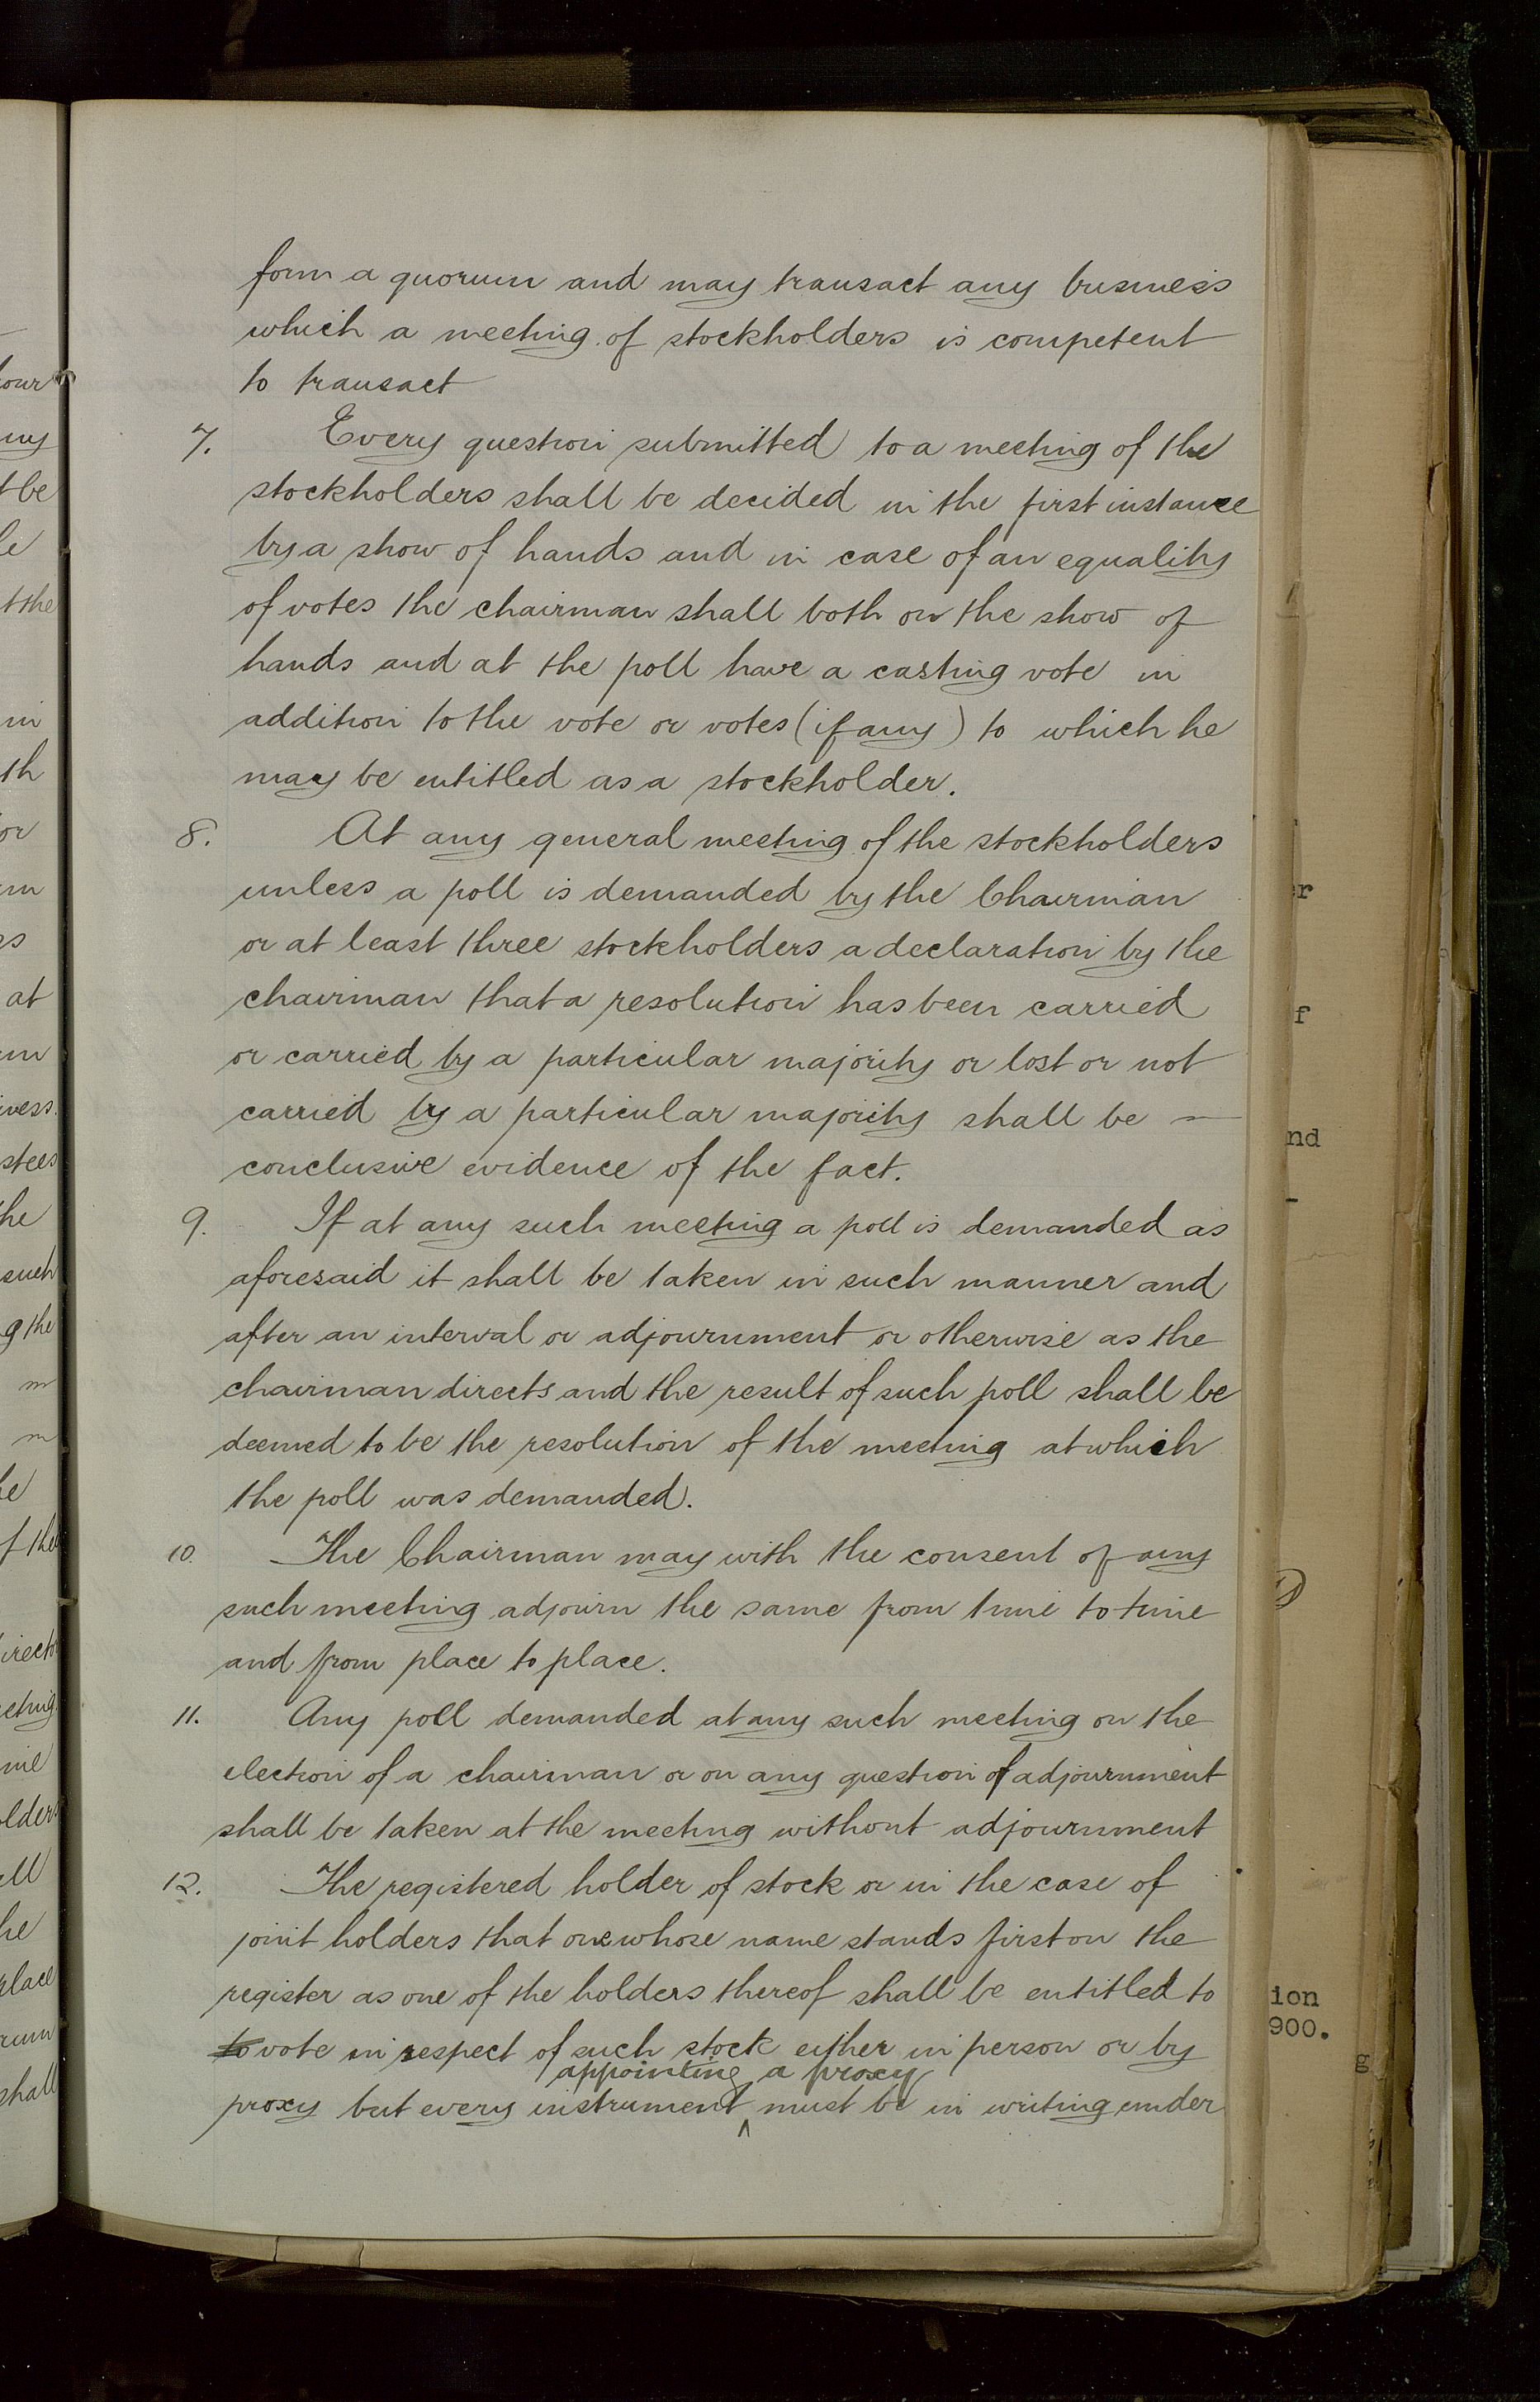 form a quorum and may transact any business
which a meeting of stockholders is competent
to transact
7. Every question submitted to a meeting of the
stockholders shall be decided in the first instance
by a show of hands and in case of an equality
of votes the chairman shall both on the show of
hands and at the poll have a casting vote in
addition to the vote or votes (if any) to which he
may be entitled as a stockholder.
8. At any general meeting of the stockholders
unless a poll is demanded by the Chairman
or at least three stockholders a declaration by the
chairman that a resolution has been carried
or carried by a particular majority or lost or not
carried by a particular majority shall be —
conclusive evidence of the fact.
9. If at any such meeting a poll is demanded as
aforesaid it shall be taken in such manner and
after an interval or adjournment or otherwise as the
chairman directs and the result of such poll shall be
deemed to be the resolution of the meeting at which
the poll was demanded.
10. The Chairman may with the consent of any
such meeting adjourn the same from time to time
and from place to place.
11. Any poll demanded at any such meeting on the
election of a chairman or on any question of adjournment
shall be taken at the meeting without adjournment
12. The registered holder of stock or in the case of
joint holders that one whose name stands first on the
register as one of the holders thereof shall be entitled to
to vote in respect of such stock either in person or by
appointing a proxy
proxy but every instrument ^ must be in writing under
er
f
nd
-
ion
900.
g